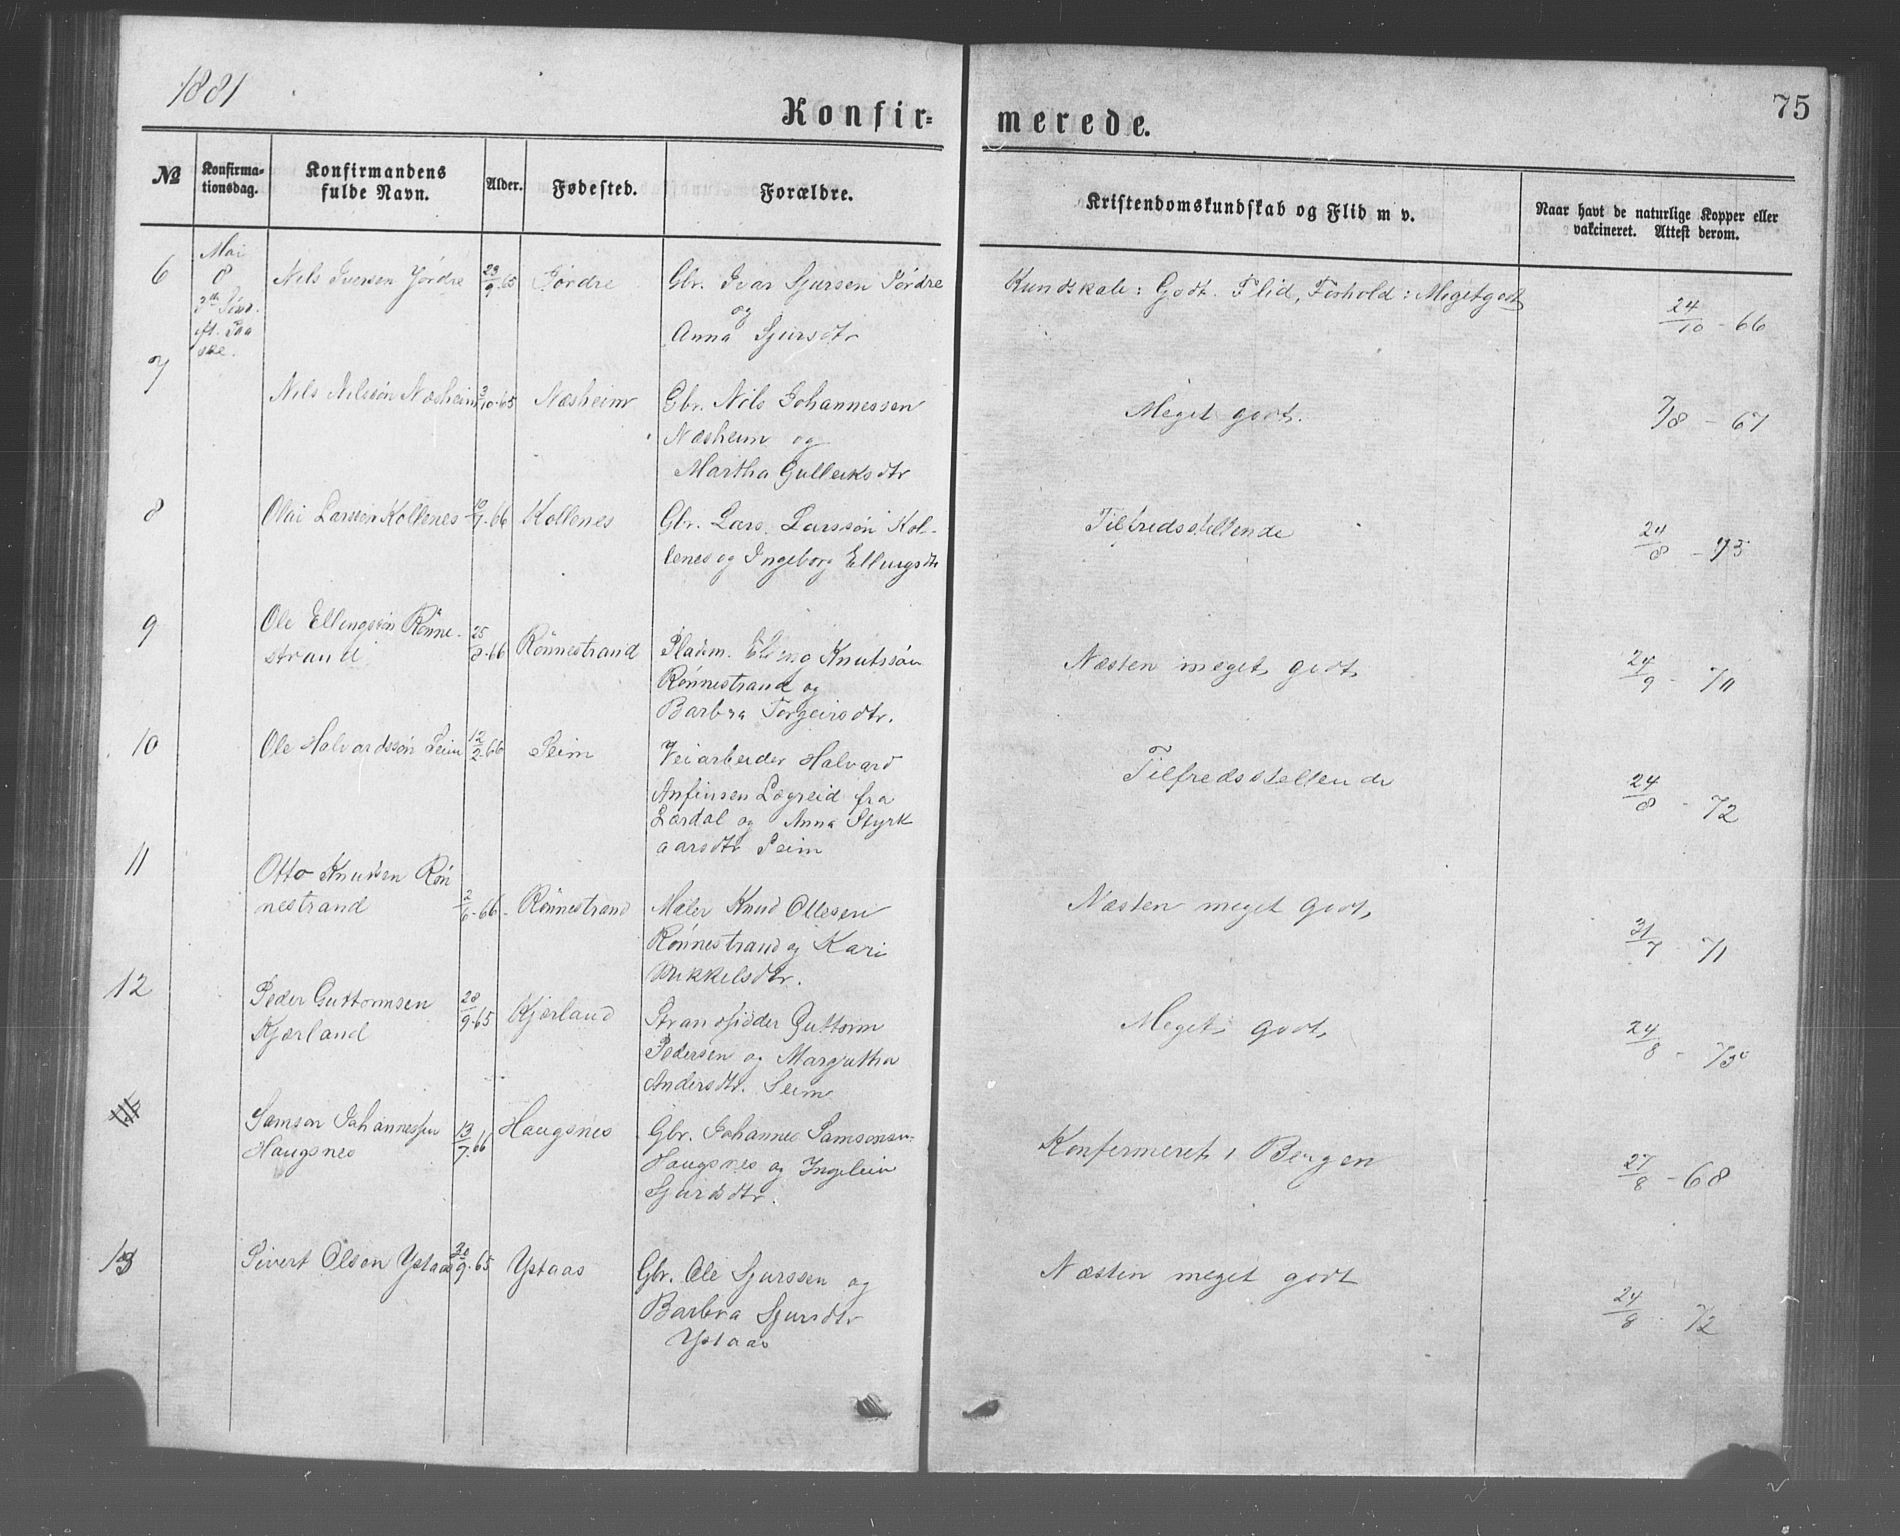 1881
75
Konfir=
merede.
№
Konfirma-
tionsdag.
Konfirmandens
fulde Navn.
Alder.
Fødested.
Forældre.
Kristendomskundskab og Flid m v.
Naar havt de naturlige Kopper eller
vakcineret. Attest derom.
6
Mai
8
3die Sønd.
eft. Paa
ske.
Nils Iversen Jördre
23/9 65
Jördre
Gbr. Ivar Sjursen Jördre
og
Anna Sjursdtr
Kundskab: Godt. Flid, Forhold: Megetgodt
24/10 - 66
7
Nils Nilssön Næsheim
3/10-65
Næsheim
Gbr. Nils Johannessen
Næsheim og
Martha Gulleiksdtr
Meget godt.
7/8 - 67
8
Olai Larssön Kollenes
10/7-66
Kollenes
Gbr. Lars Larssön Kol-
lenes og Ingeborg Ellingsdtr
Tilfredsstellende
24/8 - 73
9
Ole Ellingssön Rönne-
strand
25/8-66
Rönnestrand
Pladsm. Elling Knutssön
Rönnestrand og
Barbra Torgeirsdtr.
Næsten meget godt,
24/9 - 70
10
Ole Halvardssön Seim
12/2-66
Seim
Veiarbeider Halvard
Anfinsen Lægreid fra
Lærdal og Anna Styrk
aarsdtr Seim
Tilfredsstellende
24/8 - 72
11
Otto Knudsen Rön
nestrand
2/6-66-
Rönnestrand
Maler Knud Ollesen
Rönnestrand og Kari
Mikkelsdtr.
Næsten meget godt,
31/7 71
12
Peder Guttormsen
Kjærland
28/9-65
Kjærland
Strandsidder Guttorm
Pedersen og Margretha
Andersdtr. Seim
Meget godt,
24/8 - 73
Samson Johannessen
Haugsnes
13/7-66
Haugsnes
Gbr. Johannes Samsonsen
Haugsnes og Ingeleiv
Sjursdtr.
Konfermeret i Bergen
27/8 - 68
13
Sivert Olson Ystaas
30/9-65
Ystaas
Gbr. Ole Sjurssen og
Barbra Sjursdtr
Ystaas
Næsten meget godt
24/8 - 72